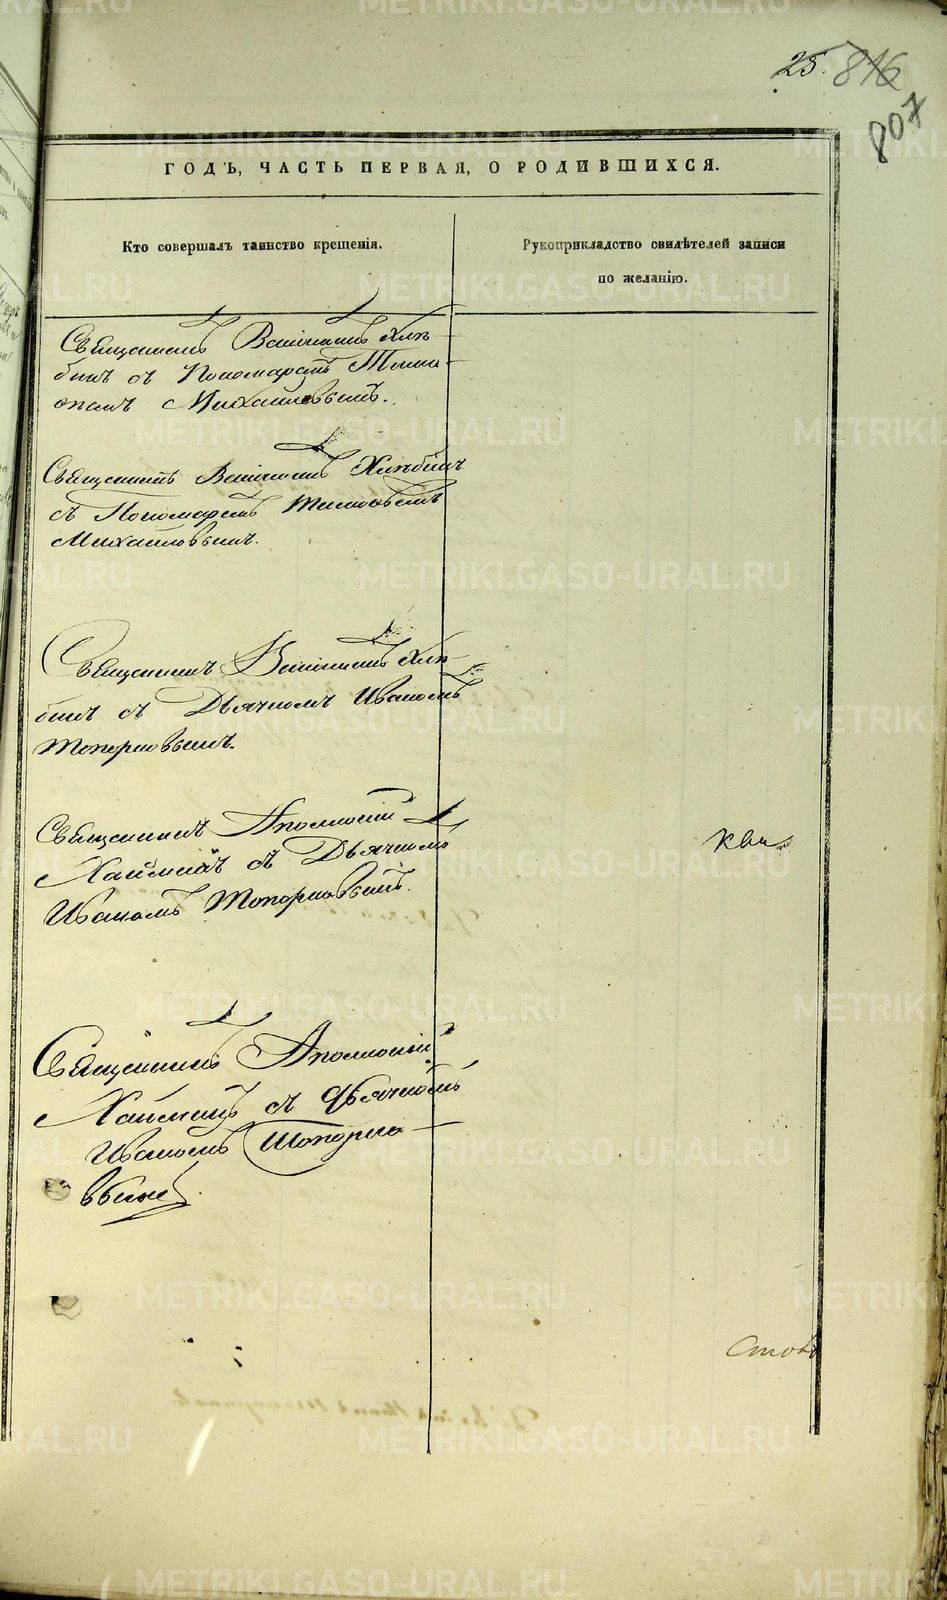 25. 816
807
ГОДЪ, ЧАСТЬ ПЕРВАЯ, О РОДИВШИХСЯ.
Кто совершалъ таинство крещенія.
Рукоприкладство свидѣтелей записи
по желанію.
Священникъ Веніаминъ Хлѣ-
бинъ съ Пономаремъ
Михайловымъ.
Священникъ Веніаминъ Хлѣбинъ
съ Пономаремъ
Михайловымъ.
Священникъ Веніаминъ Хлѣ-
бинъ съ Дьячкомъ Иваномъ
Топорковымъ.
Священникъ Аполлоній
съ Дьячкомъ
Иваномъ Топорковымъ.
Священникъ Аполлоній
съ Дьячкомъ
Иваномъ Топорко-
вымъ.
METRIKI.GASO-URAL.RU